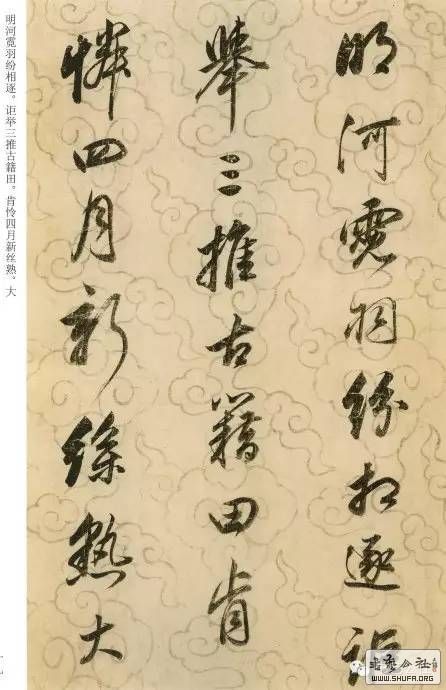 明河霓羽紛相逐詎
舉三推古籍田肯
憐四月新絲熟大
明河霓羽纷相逐。讵举三推古籍田。肯怜四月新丝熟。大
WWW.SHUFA.ORG